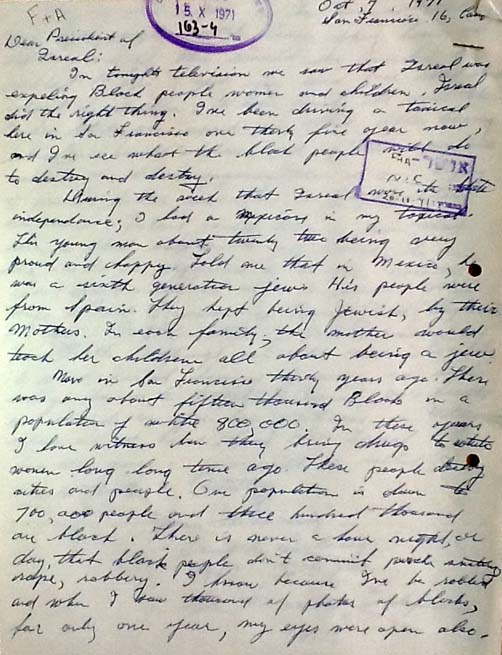 F + A
15. X 1971
163-4
Oct, 7, 1971
San Francisco 16, Cal
Dear President of
Isreal:
In tonight television we saw that Isreal was
expeling Black people women and children. Isreal
did the right thing. I've been driving a taxicab
here in San Francisco over thirty five year now,
and I've see what the black people will do
to destroy and destroy.
During the week that Isreal the state
independance, I had a Mexican in my taxicab
This young man about twenty two being very
proud and happy. Told me that in Mexico, he
was a sixth generation jew. His people were
from Spain. They kept being Jewish, by their
Mother. In each family, the mother would
teach her children all about being a jew.
Now in San Francisco thirty years ago. There
was only about fifteen thousand Blacks in a
population of white 800,000. In these years
I have witness how they bring drugs to white
women long long time ago. These people destroy
cities and people. Our population is down to
700,000 people and three hundred thousand
are black. There is never a hour night, or
day, that black people don't commit
rape, robbery. I know because I've be robbed
and when I saw thousand of photos of blacks,
for only one year, my eyes were open also.